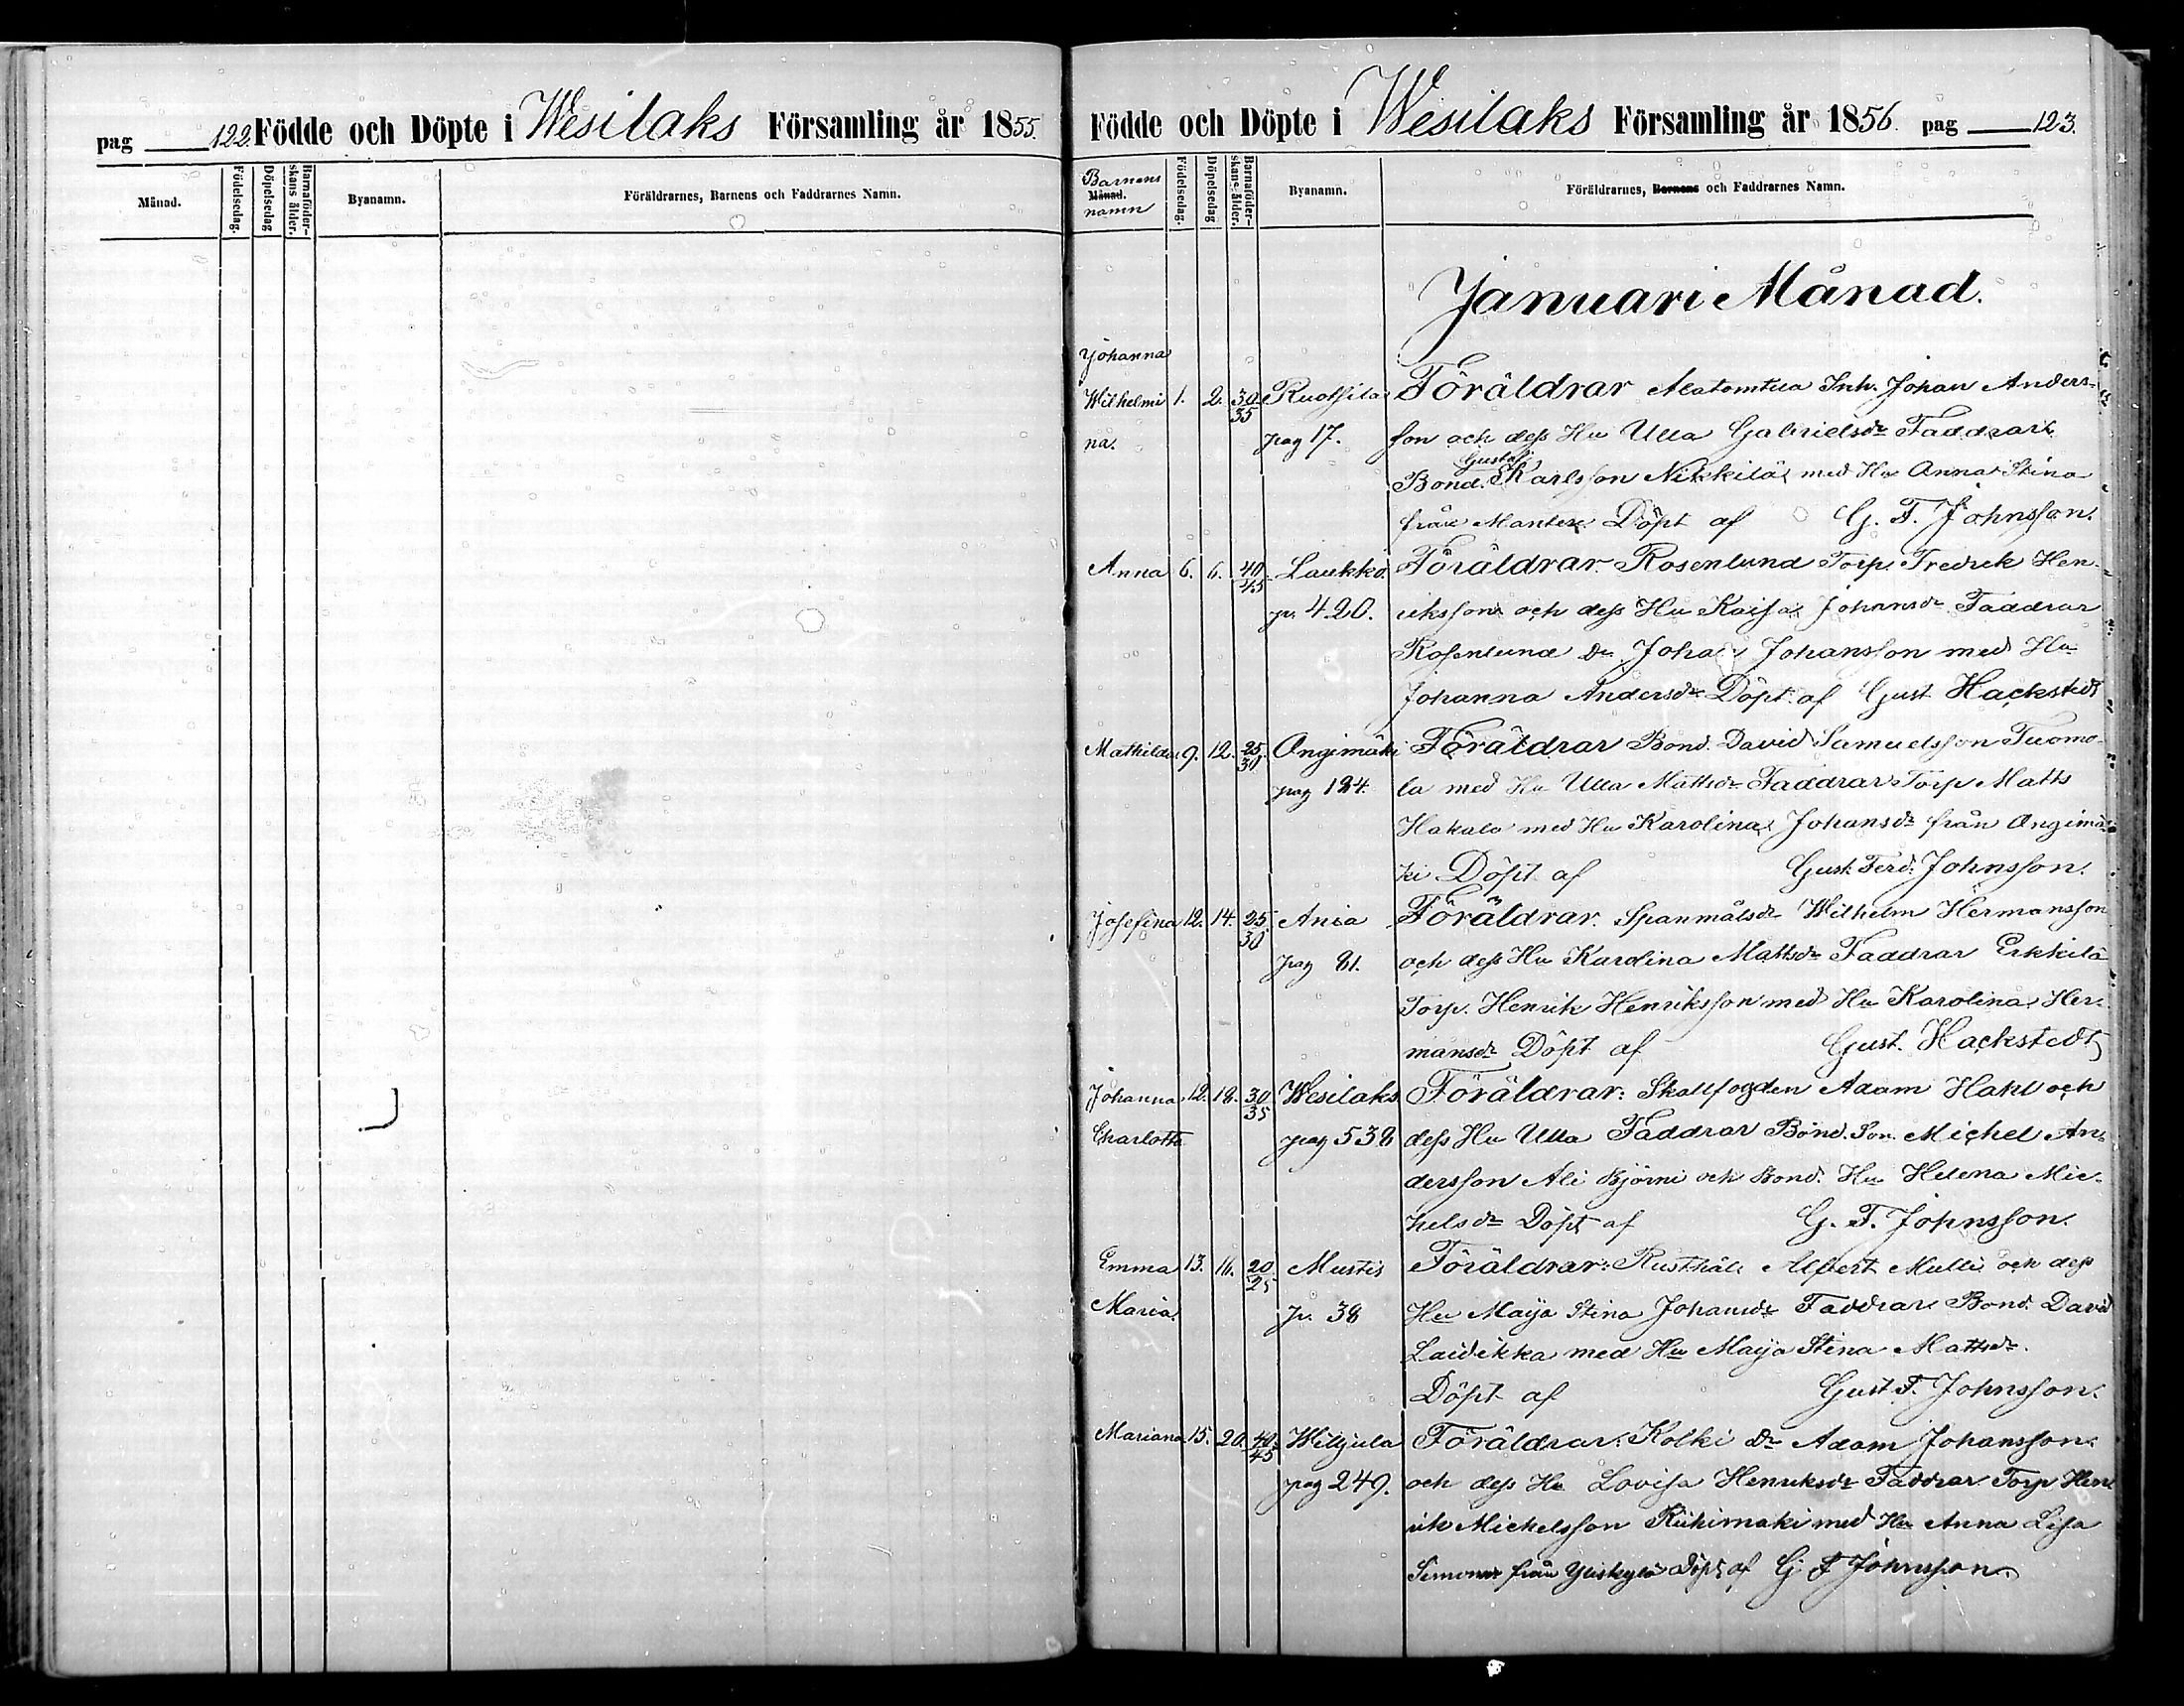 pag 122. Födde och Döpte i Wesilaks Församling år 1855.
Månad. Födelsedag. Döpelsedag Barnaföder-skans ålder. Byanamn. Föräldrarnes, Barnens och Faddrarnes Namn.
Födde och Döpte i Wesilaks Församling år 1856. pag 123.
Barnens Månad. namn Födelsedag. Döpelsedag Barnaföder-skans ålder. Byanamn. Föräldrarnes, Barnens och Faddrarnes Namn.
Januari Månad.
Johanna
Wilhelmi 1. 2. 30/35 Ruotsila Föräldrar Alatomtua Inh. Johan Anders-
na. pag 17. son och dess Hu Ulla Gabrielsdr Faddrar
Gustaf
Bond. Karlsson Nikkilä med Hu Anna Stina
från Mantere Döpt af G. F. Johnsson.
Anna 6. 6. 40/45 Laukko. Föräldrar. Rosenlund Torp. Fredrik Hen-
p. 420. riksson och dess Hu Kaisa Johansdr Faddrar
Rosenlund Dr Johan Johansson med Hu
Johanna Andersdr Döpt af Gust Hackstedt
Mathilda 9. 12. 25/30 Ongimäki Föräldrar Bond. David Samuelsson Tuomo-
pag 124. la med Hu Ulla Mattsdr Faddrar Torp Matts
Hakala med Hu Karolina Johansdr från Ongimä-
ki Döpt af Gust. Ferd. Johnsson.
Josefina 12. 14. 25/30 Ania Föräldrar. Spanmålsdr Wilhelm Hermansson
pag 81. och dess Hu Karolina Mattsdr Faddrar Erkkilä
Torp. Henrik Henriksson med Hu Karolina Her-
mansdr Döpt af Gust. Hackstedt
Johanna 12. 18. 30/35 Wesilaks Föräldrar: Skallfogden Adam Hahl och
Charlotta pag 538 dess Hu Ulla Faddrar Bond. Son. Michel An-
dersson Ali Björni och Bond. Hu Helena Mic-
helsdr Döpt af G. F. Johnsson.
Emma 13. 16. 20/25 Mustis Föräldrar: Rusthåll. Albert Mulli och dess
Maria. p. 38 Hu Maija Stina Johansdr Faddrar Bond. David
Laidikka med Hu Maija Stina Mattsdr.
Döpt af Gust F. Johnsson.
Mariana 15. 20. 40/45 Wiljula Föräldrar. Kolki Dr Adam Johansson.
pag 249. och dess Hu Lovisa Henriksdr Faddrar Torp Hen
rik Michelsson Riihimaki med Hu Anna Lisa
från Döpt af G F Johnsson.